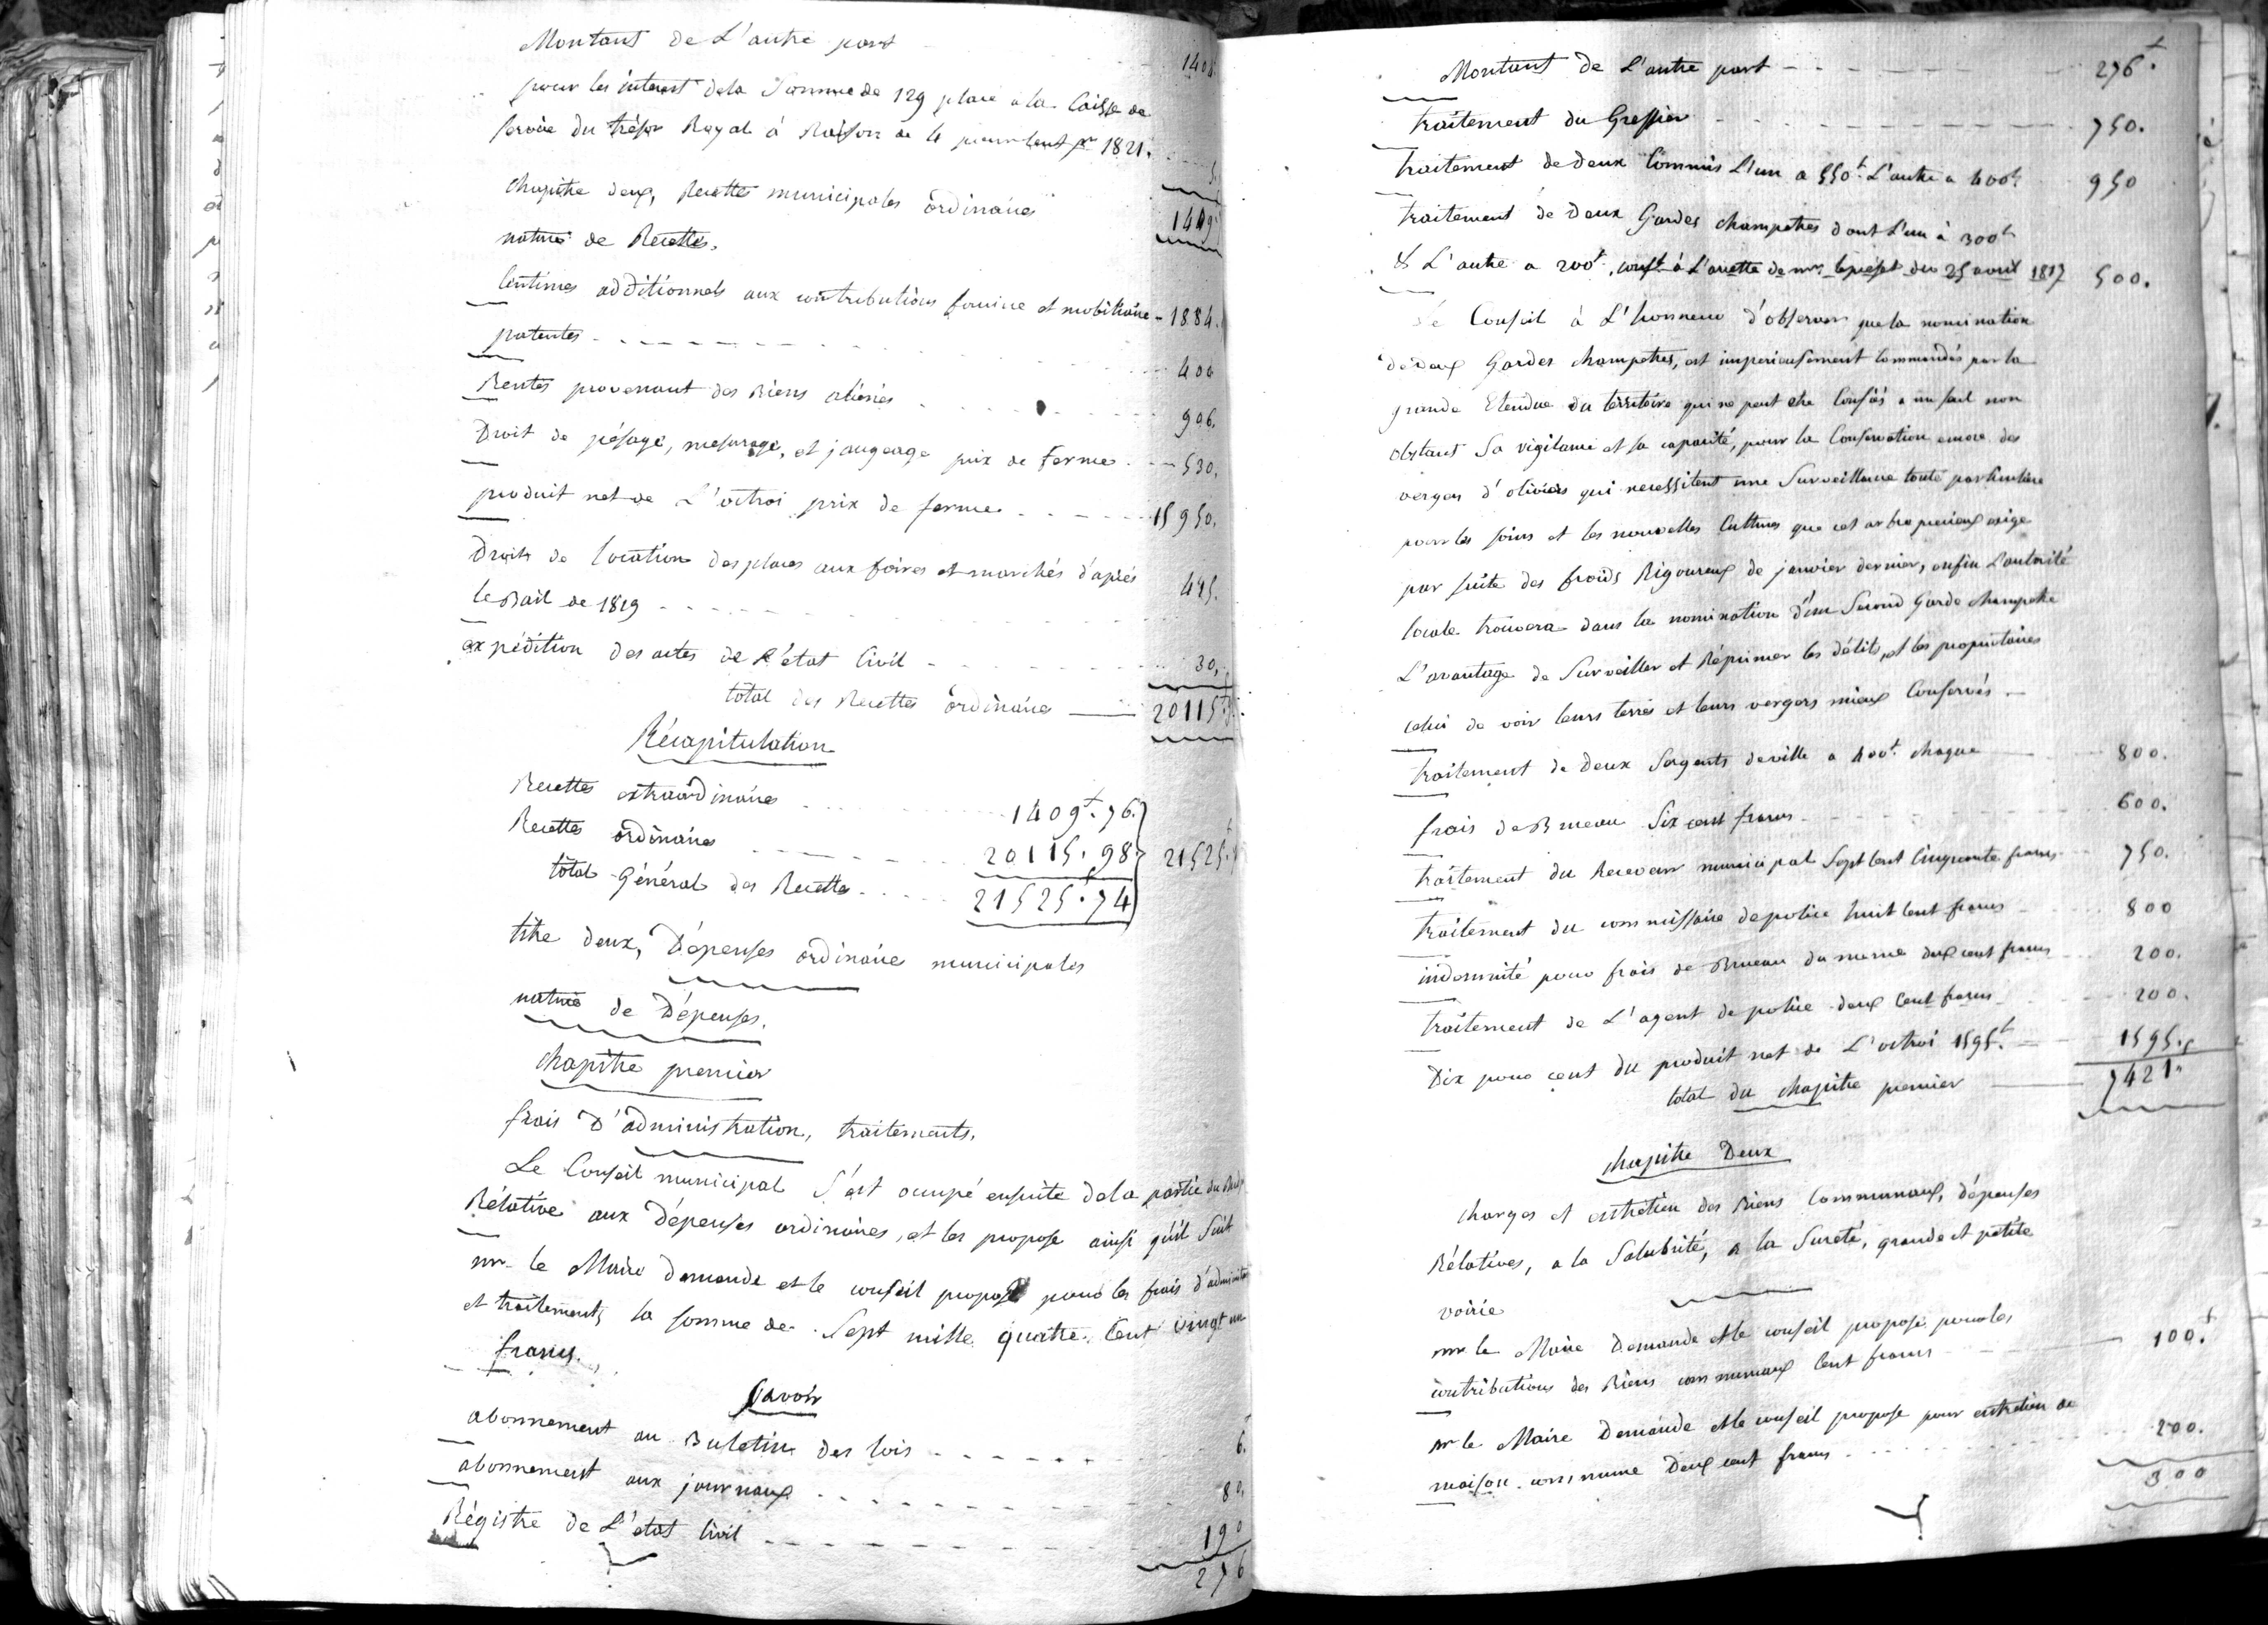 Montant de L'autre part - - 1404.
pour les interest dela Somme de 129 place a la Caisse de
Service du trésor Royal à Raison de 4 pour Cent pr 1821. - - 5.
1409
chapitre deux, Recettes municipales ordinaires
nature de Recettes.
Centimes additionnels aux contributions fonciere et mobiliaire - 1884.
patentes - - - - 400
Rentes provenant des Biens aliénés - - - 906.
Droit de pésage, mesurage, et jaugeage prix de ferme - - 530.
produit net de L'octroi prix de ferme - - - 15950.
Droits de location des places aux foires et marchés d'après
le Bail de 1819 - - - - 415.
expédition des actes de L'état Civil - - - 30.
total des Recettes ordinaires - 20115
Récapitulation
Recettes extraordinaires - - - 1409t.76.
Recettes ordinaires - - - 20115.98. 21525
total Général des Recettes - - - 21525.74
titre deux, Dépenses ordinaires municipales
nature de Dépenses.
chapitre premier
frais D'administration, traitements.
Le Conseil municipal S'est occupé ensuite dela partie du
Rélative aux Dépenses ordinaires, et les propose ainsi qu'il Suit
mr le Maire Demande et le conseil propose pour les frais d'administ
et traitements la somme de Sept mille quatre Cent vingt un
francs.
Savoir
abonnement au Buletin des lois - - - - 6.
abonnement aux journaux - - - - 80.
Régistre de L'etat Civil - - - - 190
276
Montant de L'autre part - - - - 276.t
traitement du Greffier - - - - 750.
traitement de deux Commis L'un a 550t. L'autre a 400t. 950
traitement de Deux Gardes champetres dont L'un à 300t
& L'autre a 200t, conft à L'arretté de mr le préfet du 25 avril 1817 500.
Le Conseil à L'honneur d'observer que la nomination
de deux Gardes champetres, est imperieusement Commandés par la
grande Etendue du territoire qui ne peut etre Confiés a un seul non
obstant Sa vigilance et sa capacité, pour la Conservation encore des
vergers d'oliviers qui necessitent une Surveillance toute particuliere
pour les soins et les nouvelles Cultures que cet arbre precieux exige
par suite des froids Rigoureux de janvier dernier, enfin L'autorité
locale trouvera dans la nomination d'un Second Garde champetre
L'avantage de Surveiller et Réprimer les délits, et les propriétaires
celui de voir leurs terres et leurs vergers mieux Conservés.
traitement de Deux Sergents de ville a 400t. chaque - 800.
frais de Bureau Six cent francs - - - 600.
traitement du Receveur municipal Sept Cent Cinquante francs - 750.
traitement du commissaire de police huit Cent francs - - 800
indemnité pour frais de Bureau du meme deux cent francs - 200.
traitement de L'agent de police deux Cent francs - - 200.
Dix pour cent du produit net de L'octroi 1595.t - 1595.
total du chapitre premier - 7421.
chapitre Deux
charges et entretien des Biens Communaux, dépenses
Rélatives, a la Salubrité, a la Sureté, grande et petite
voirie
mr le Maire Demande et le conseil propose pour les
contributions des Biens communaux Cent francs - - 100.t
mr le Maire Demande et le conseil propose pour entretien de
maison commune Deux cent francs - - - 200.
300